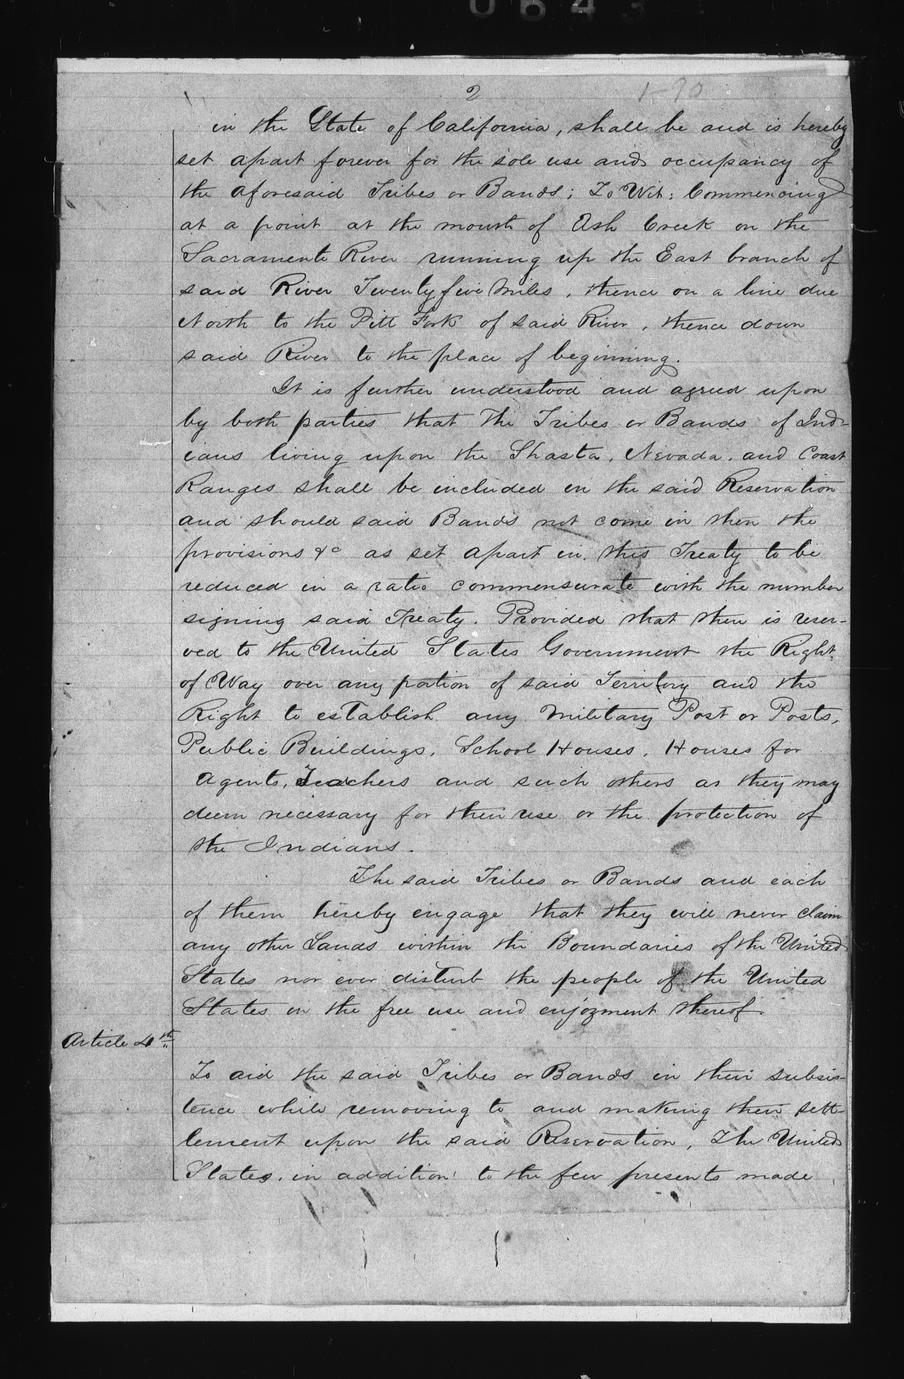 0643
2
1-90
in the State of California, shall be and is hereby
set apart forever for the sole use and occupancy of
the aforesaid Tribes or Bands; To Wit: Commencing
at a point at the mouth of Ash Creek on the
Sacramento River running up the East branch of
said River Twenty five Miles, thence on a line due
North to the Pitt Fork of said River, thence down
said River to the place of beginning.
It is further understood and agreed upon
by both parties that The Tribes or Bands of Ind-
ians living upon the Shasta, Nevada, and Coast
Ranges shall be included in the said Reservation
and should said Bands not come in then the
provisions &c as set apart in this Treaty to be
reduced in a ratio commensurate with the number
signing said Treaty. Provided that there is reser-
ved to the United States Government the Right
of Way over any portion of said Territory and the
Right to establish any Military Post or Posts,
Public Buildings, School Houses, Houses for
Agents, Teachers and such others as they may
deem necessary for their use or the protection of
the Indians.
The said Tribes or Bands and each
of them hereby engage that they will never claim
any other Lands within the Boundaries of the United
States nor ever disturb the people of the United
States in the free use and enjoyment thereof.
Article 4th
To aid the said Tribes or Bands in their subsis-
tence while removing to and making their sett-
lement upon the said Reservation, The United
States, in addition to the few presents made